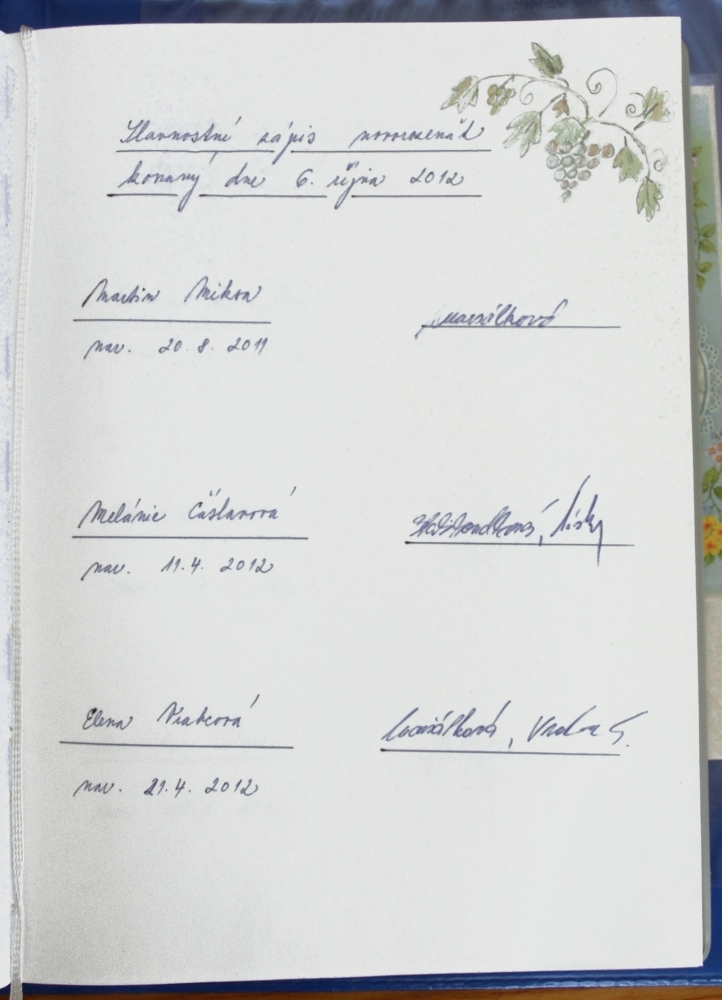 Slavnostní zápis novorozeňát
konaný dne 6. října 2012
Martin Mikva
nar. 20.8.2011
Melánie Čáslavová
nar. 11.4. 2012
Elena Vrabcová
nar. 21.4. 2012